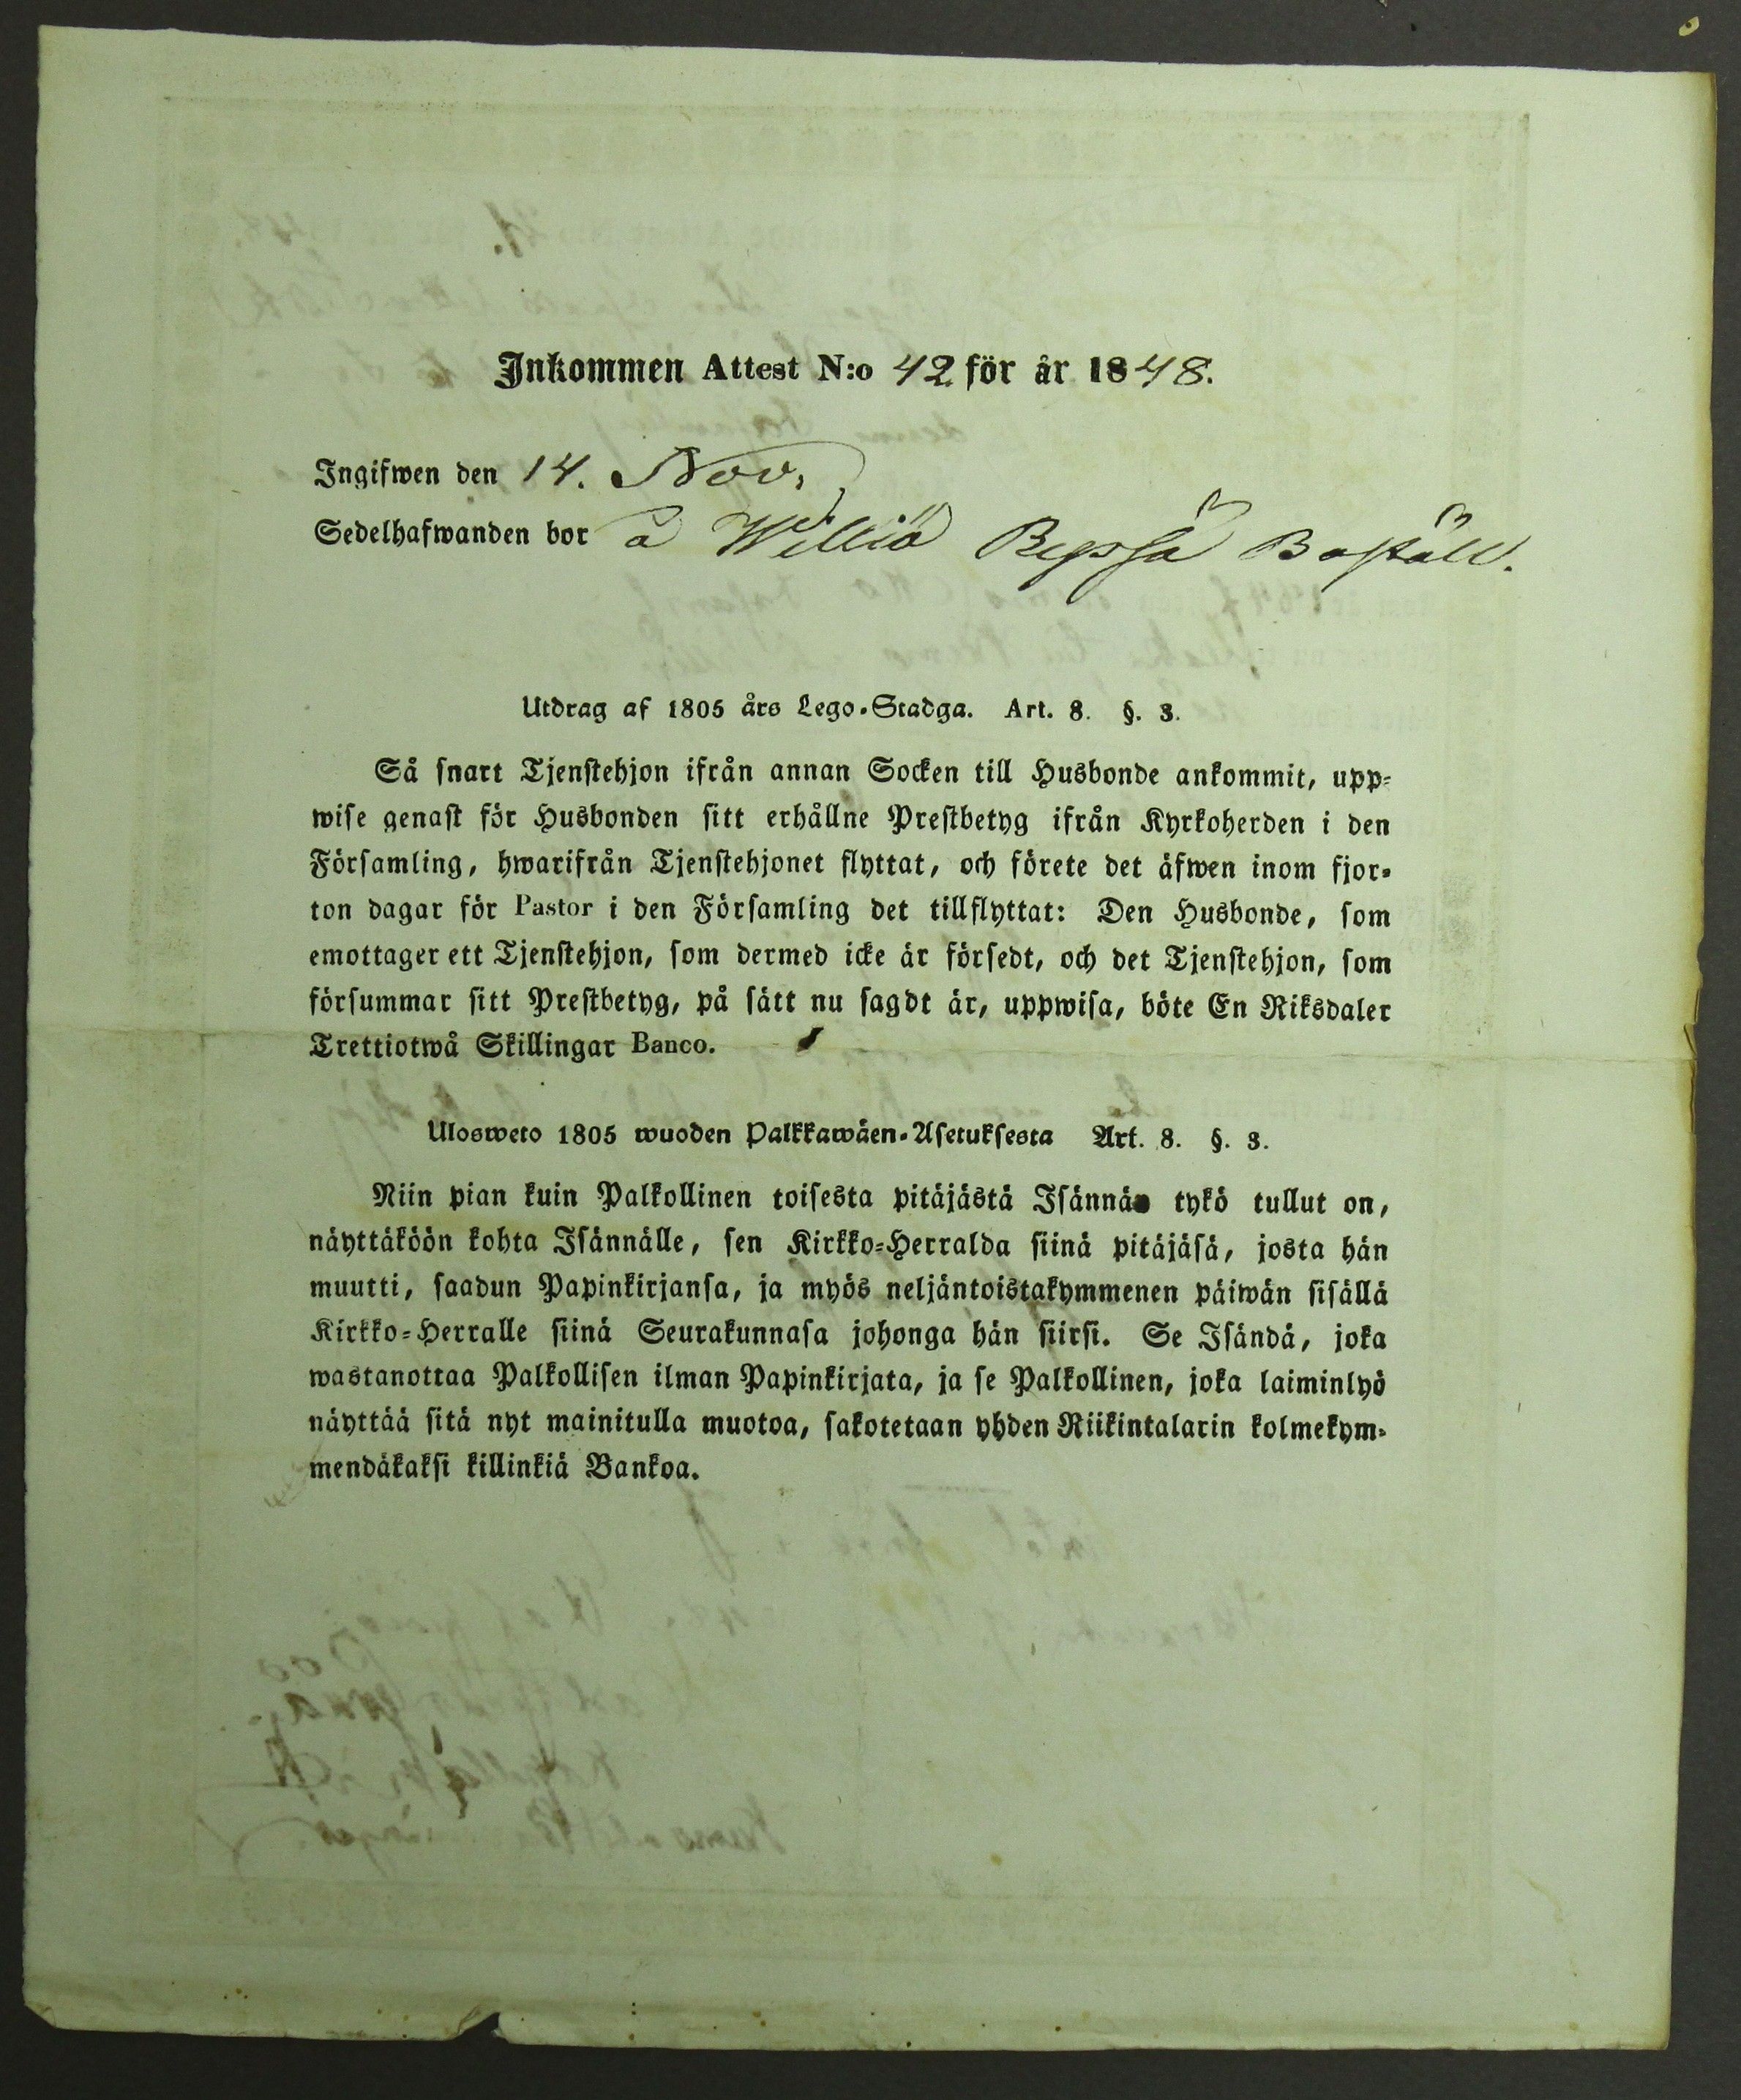 Inkommen Attest N:o 42 för år 1848.
Ingifwen den 14. Nov.
Sedelhafwanden bor å Williä Boställ.
Utdrag af 1805 års Lego-Stadga. Art. 8. §. 3.
Så snart Tjenstehjon ifrån annan Socken till Husbonde ankommit, upp-
wise genast för Husbonden sitt erhållne Prestbetyg ifrån Kyrkoherden i den
Församling, hwarifrån Tjenstehjonet flyttat, och förete det äfwen inom fjor-
ton dagar för Pastor i den Församling det tillflyttat: Den Husbonde, som
emottager ett Tjenstehjon, som dermed icke är försedt, och det Tjenstehjon, som
försummar sitt Prestbetyg, på sätt nu sagdt är, uppwisa, böte En Riksdaler
Trettiotwå Skillingar Banco.
Ulosweto 1805 wuoden Palkkawäen-Asetuksesta Art. 8. §. 3.
Niin pian kuin Palkollinen toisesta pitäjästä Isännän tykö tullut on,
näyttäköön kohta Isännälle, sen Kirkko-Herralda siinä pitäjäsä, josta hän
muutti, saadun Papinkirjansa, ja myös neljäntoistakymmenen päiwän sisällä
Kirkko-Herralle siinä Seurakunnasa johonga hän siirsi. Se Isändä, joka
wastanottaa Palkollisen ilman Papinkirjata, ja se Palkollinen, joka laiminlyö
näyttää sitä nyt mainitulla muotoa, sakotetaan yhden Riikintalarin kolmekym-
mendäkaksi killinkiä Bankoa.